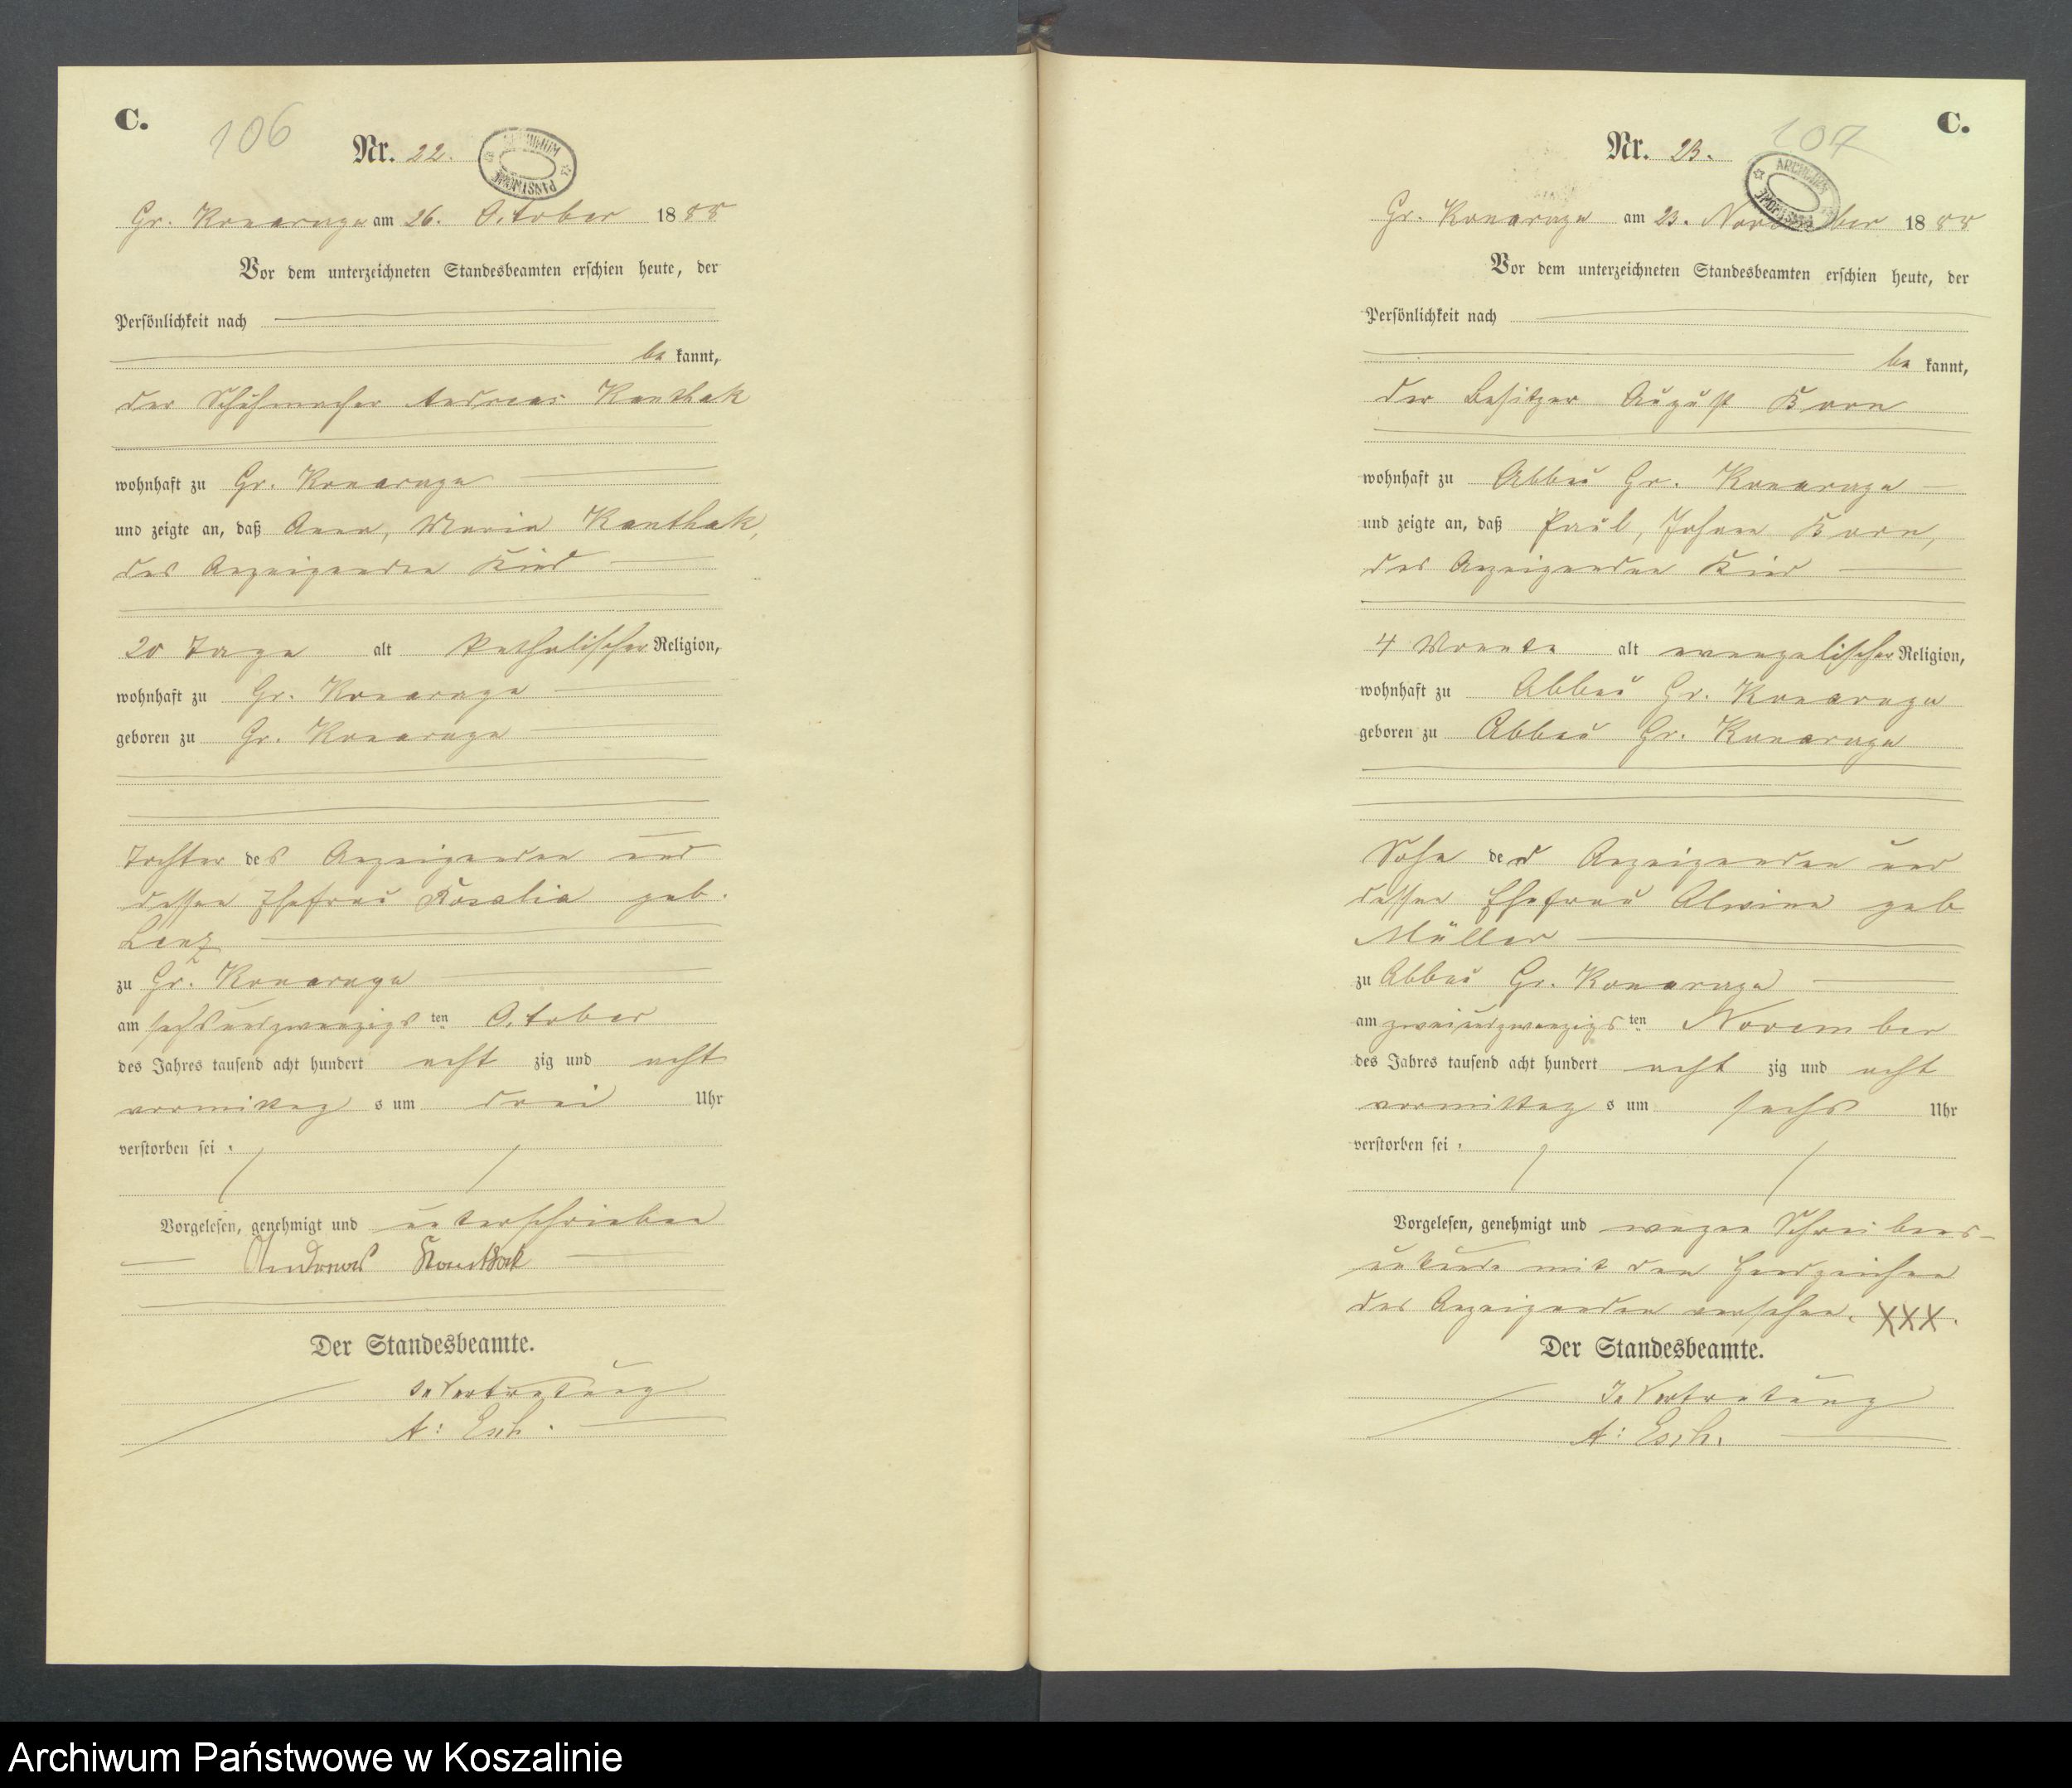 C.
106
Nr. 22.
ARCHIWUM PAŃSTWOWE
Gr. Konarzyn am 26. October 1888
Vor dem unterzeichneten Standesbeamten erschien heute, der
Persönlichkeit nach
be kannt,
der Schuhmacher Andreas Kanthak
wohnhaft zu Gr. Konarzyn
und zeigte an, daß Anna, Maria Kanthak,
des Anzeigenden Kind
20 Tage alt katholischer Religion,
wohnhaft zu Gr. Konarzyn
geboren zu Gr. Konarzyn
Tochter des Anzeigenden und
dessen Ehefrau Rosalia geb.
Lenz
zu Gr. Konarzyn
am sechsundzwanzigs ten October
des Jahres tausend acht hundert acht zig und acht
vormittag s um drei Uhr
verstorben sei.
Vorgelesen, genehmigt und unterschrieben
Andreas Kanthak
Der Standesbeamte.
In Vertretung
A: Esch.
C.
107
Nr. 23.
ARCHIWUM PAŃSTWOWE
Gr. Konarzyn am 23. November 1888
Vor dem unterzeichneten Standesbeamten erschien heute, der
Persönlichkeit nach
be kannt,
der Besitzer August Korn
wohnhaft zu Abbau Gr. Konarzyn
und zeigte an, daß Paul, Johann Korn,
des Anzeigenden Kind
4 Monate alt evangelischer Religion,
wohnhaft zu Abbau Gr. Konarzyn
geboren zu Abbau Gr. Konarzyn
Sohn des Anzeigenden und
dessen Ehefrau Alwine geb
Müller
zu Abbau Gr. Konarzyn
am zweiundzwanzigs ten November
des Jahres tausend acht hundert acht zig und acht
vormittag s um sechs Uhr
verstorben sei.
Vorgelesen, genehmigt und wegen Schreibens-
unkunde mit den Handzeichen
des Anzeigenden versehen. XXX.
Der Standesbeamte.
In Vertretung
A: Esch.
Archiwum Państwowe w Koszalinie